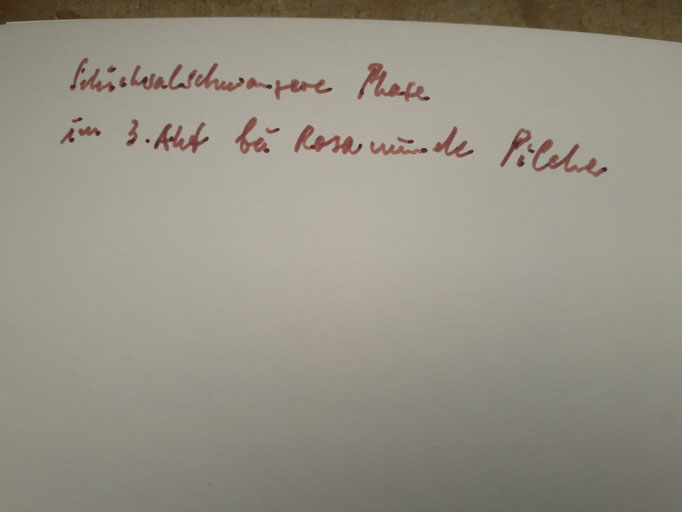 Schicksalschwangere Phase
im 3. Akt bei Rosamunde Pilcher